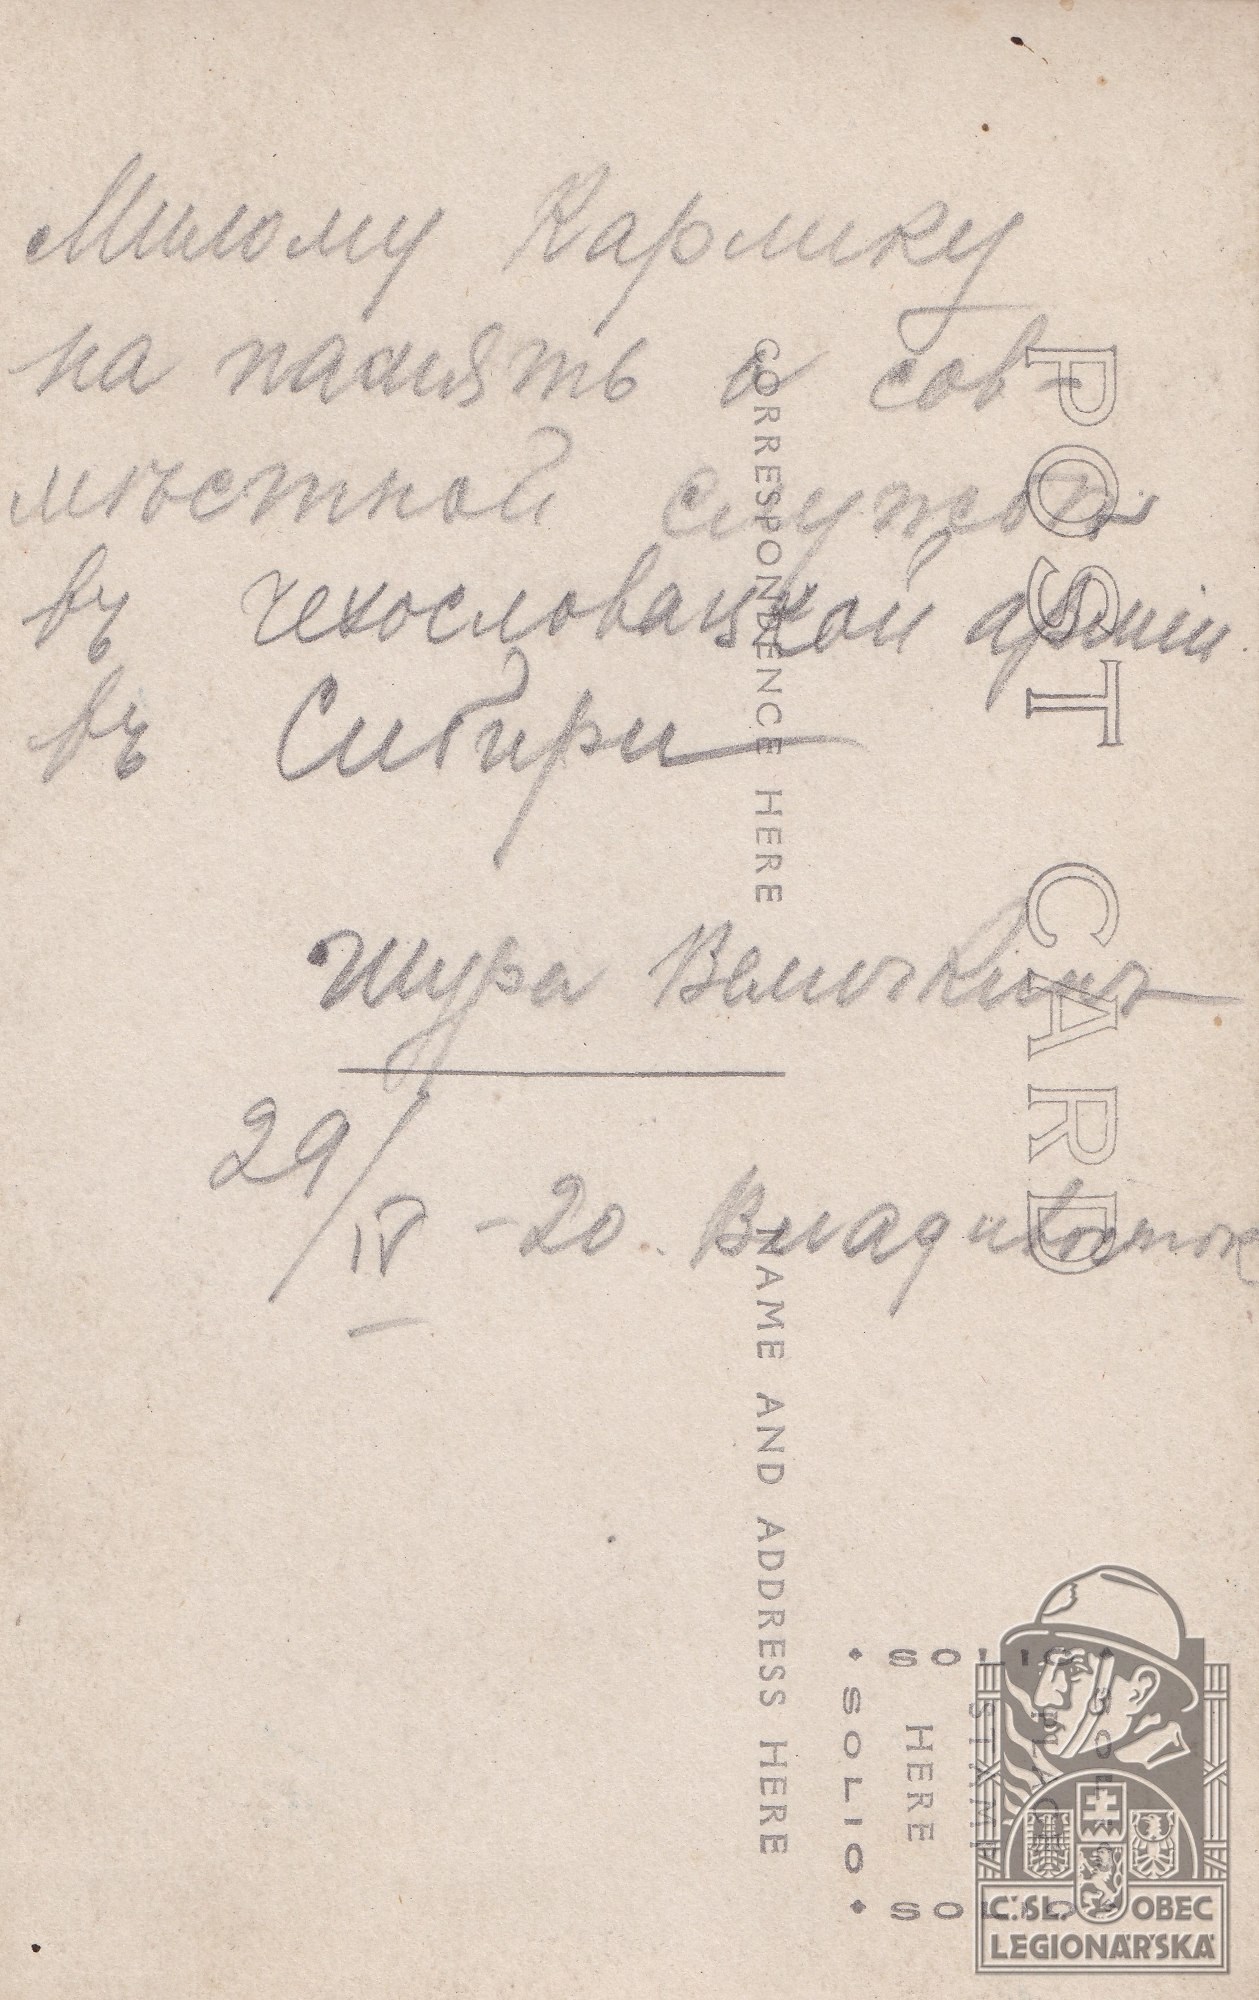 Милому Карлику
на память о сов-
мѣстной службѣ
въ чехословацкой арміи
въ Сибири
Шура
29/IV - 20. Владивосток
POST CARD
CORRESPONDENCE HERE
NAME AND ADDRESS HERE
SOLIO
SOLIO
SOLIO
SOLIO
PLACE
STAMP
HERE
Č.SL. OBEC
LEGIONÁŘSKÁ